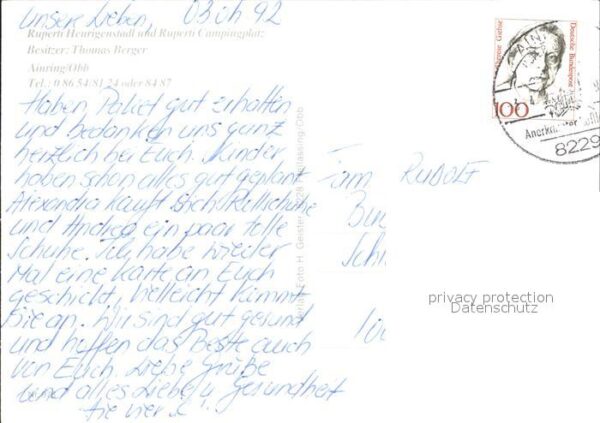 Unsere Lieben, 03.04.92
Ruperti Heurigenstadl und Ruperti Campingplatz
Besitzer: Thomas Berger
Ainring/Obb
Tel.: 0 86 54/81 24 oder 84 87
Haben Paket gut erhalten
und bedanken uns ganz
herzlich bei Euch. Kinder
haben schon alles gut geplant
Alexandra kauft sich Reitschuhe
und Andrea ein paar tolle
Schuhe. Ich habe wieder
Mal eine Karte an Euch
geschickt, vielleicht kommt
sie an. Wir sind gut gesund
und hoffen das Beste auch
von Euch. Liebe Grüße
und alles Liebe u. Gesundheit
die vier
Foto H. Geister
Fam RUDOLF
Deutsche Bundespost
100
8229
privacy protection
Datenschutz